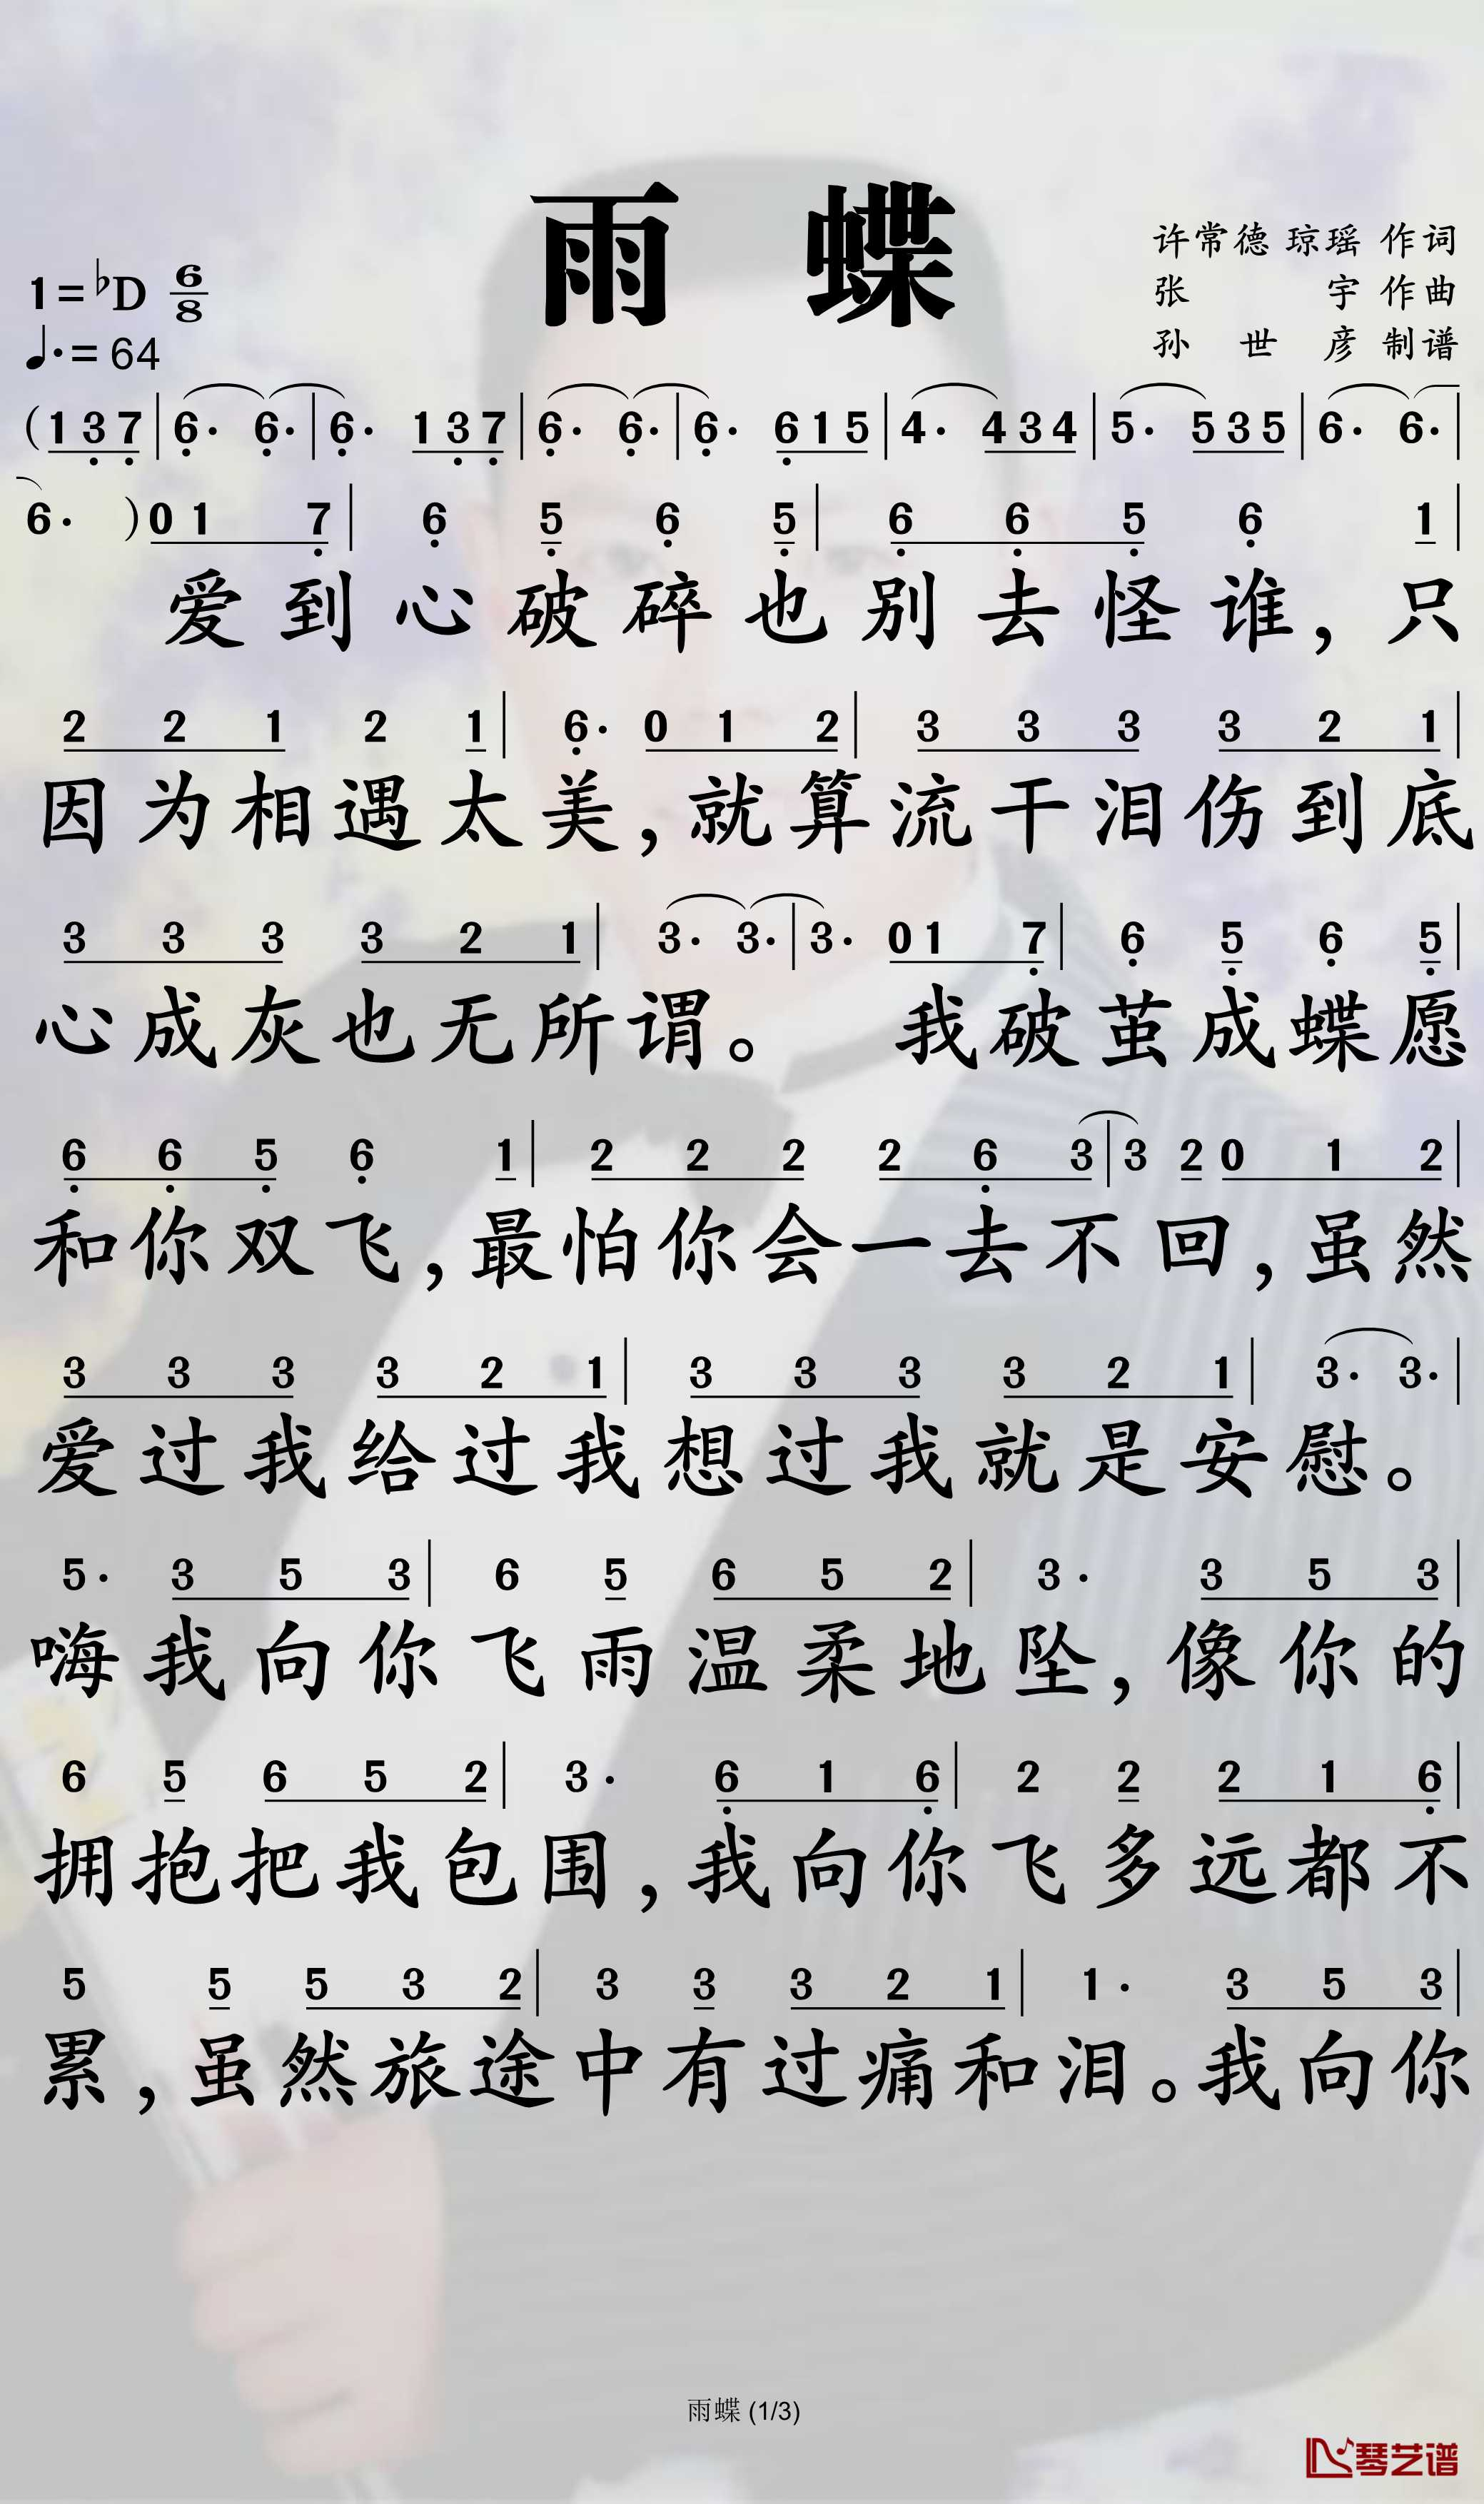 雨 蝶
许常德 琼瑶 作词
1=♭D 6/8
张 宇 作曲
♩.=64
孙世彦 制谱
(1 3 7|6. 6.|6. 1 3 7|6. 6.|6. 6 1 5|4. 4 3 4|5. 5 3 5|6. 6.|
6. )0 1 7|6 5 6 5|6 6 5 6 1|
爱到心破碎也别去怪谁，只
2 2 1 2 1|6. 0 1 2|3 3 3 3 2 1|
因为相遇太美，就算流干泪伤到底
3 3 3 3 2 1|3. 3.|3. 0 1 7|6 5 6 5|
心成灰也无所谓。 我破茧成蝶愿
6 6 5 6 1|2 2 2 2 6 3|3 2 0 1 2|
和你双飞，最怕你会一去不回，虽然
3 3 3 3 2 1|3 3 3 3 2 1|3. 3.|
爱过我给过我想过我就是安慰。
5. 3 5 3|6 5 6 5 2|3. 3 5 3|
嗨我向你飞雨温柔地坠，像你的
6 5 6 5 2|3. 6 1 6|2 2 2 1 6|
拥抱把我包围，我向你飞多远都不
5 5 5 3 2|3 3 3 2 1|1. 3 5 3|
累，虽然旅途中有过痛和泪。我向你
雨蝶 (1/3)
琴艺谱